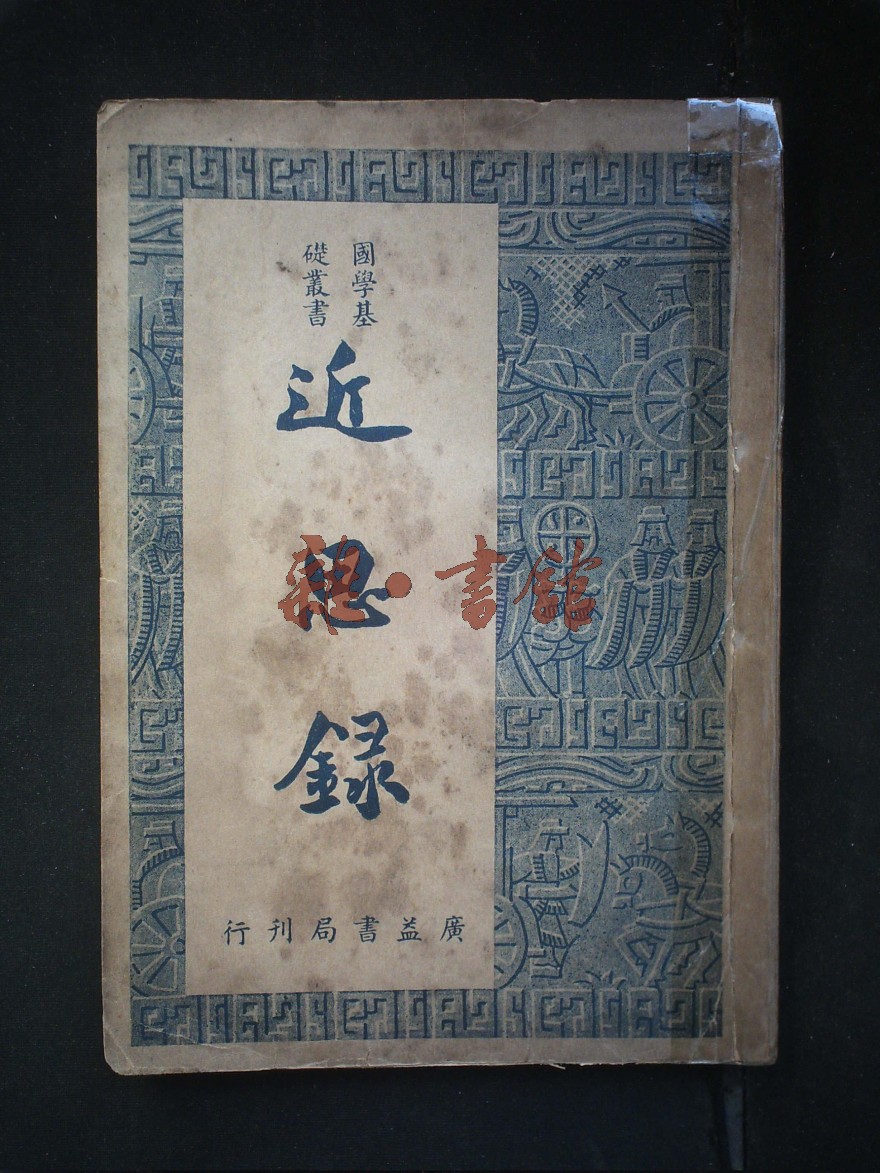 國學基
礎叢書
近思錄
廣益書局刊行
書館